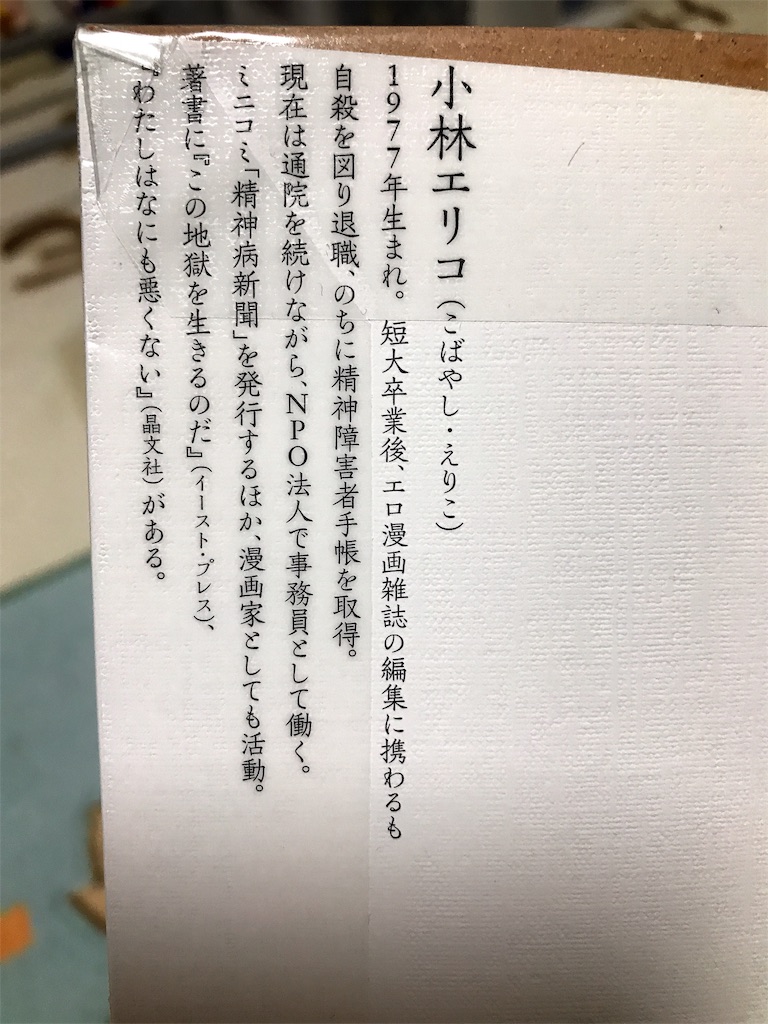 小林エリコ(こばやし・えりこ)
1977年生まれ。短大卒業後、エロ漫画雑誌の編集に携わるも
自殺を図り退職、のちに精神障害者手帳を取得。
現在は通院を続けながら、NPO法人で事務員として働く。
ミニコミ「精神病新聞」を発行するほか、漫画家としても活動。
著書に『この地獄を生きるのだ』(イースト・プレス)、
『わたしはなにも悪くない』(晶文社)がある。